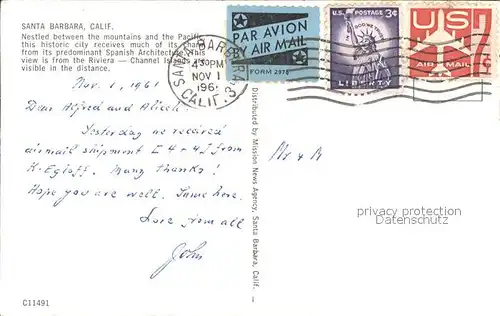 SANTA BARBARA, CALIF.
Nestled between the mountains and the Pacific,
this historic city receives much of its charm
from its predominant Spanish Architecture. This
view is from the Riviera — Channel Islands are
visible in the distance.
SANTA BARBARA
430PM
NOV 1
1961
CALIF. 3
PAR AVION
AIR MAIL
FORM 2978
U.S. POSTAGE 3¢
IN GOD WE TRUST
LIBERTY
US 7¢
AIR MAIL
Nov. 1, 1961
Dear Alfred and Alice:
Yesterday we received
airmail shipment I 4 + 4 J from
K. Egloff. Many thanks!
Hope you are well. Same here.
Love from all
John
Mr & M
Distributed by Mission News Agency, Santa Barbara, Calif.
privacy protection
Datenschutz
C11491